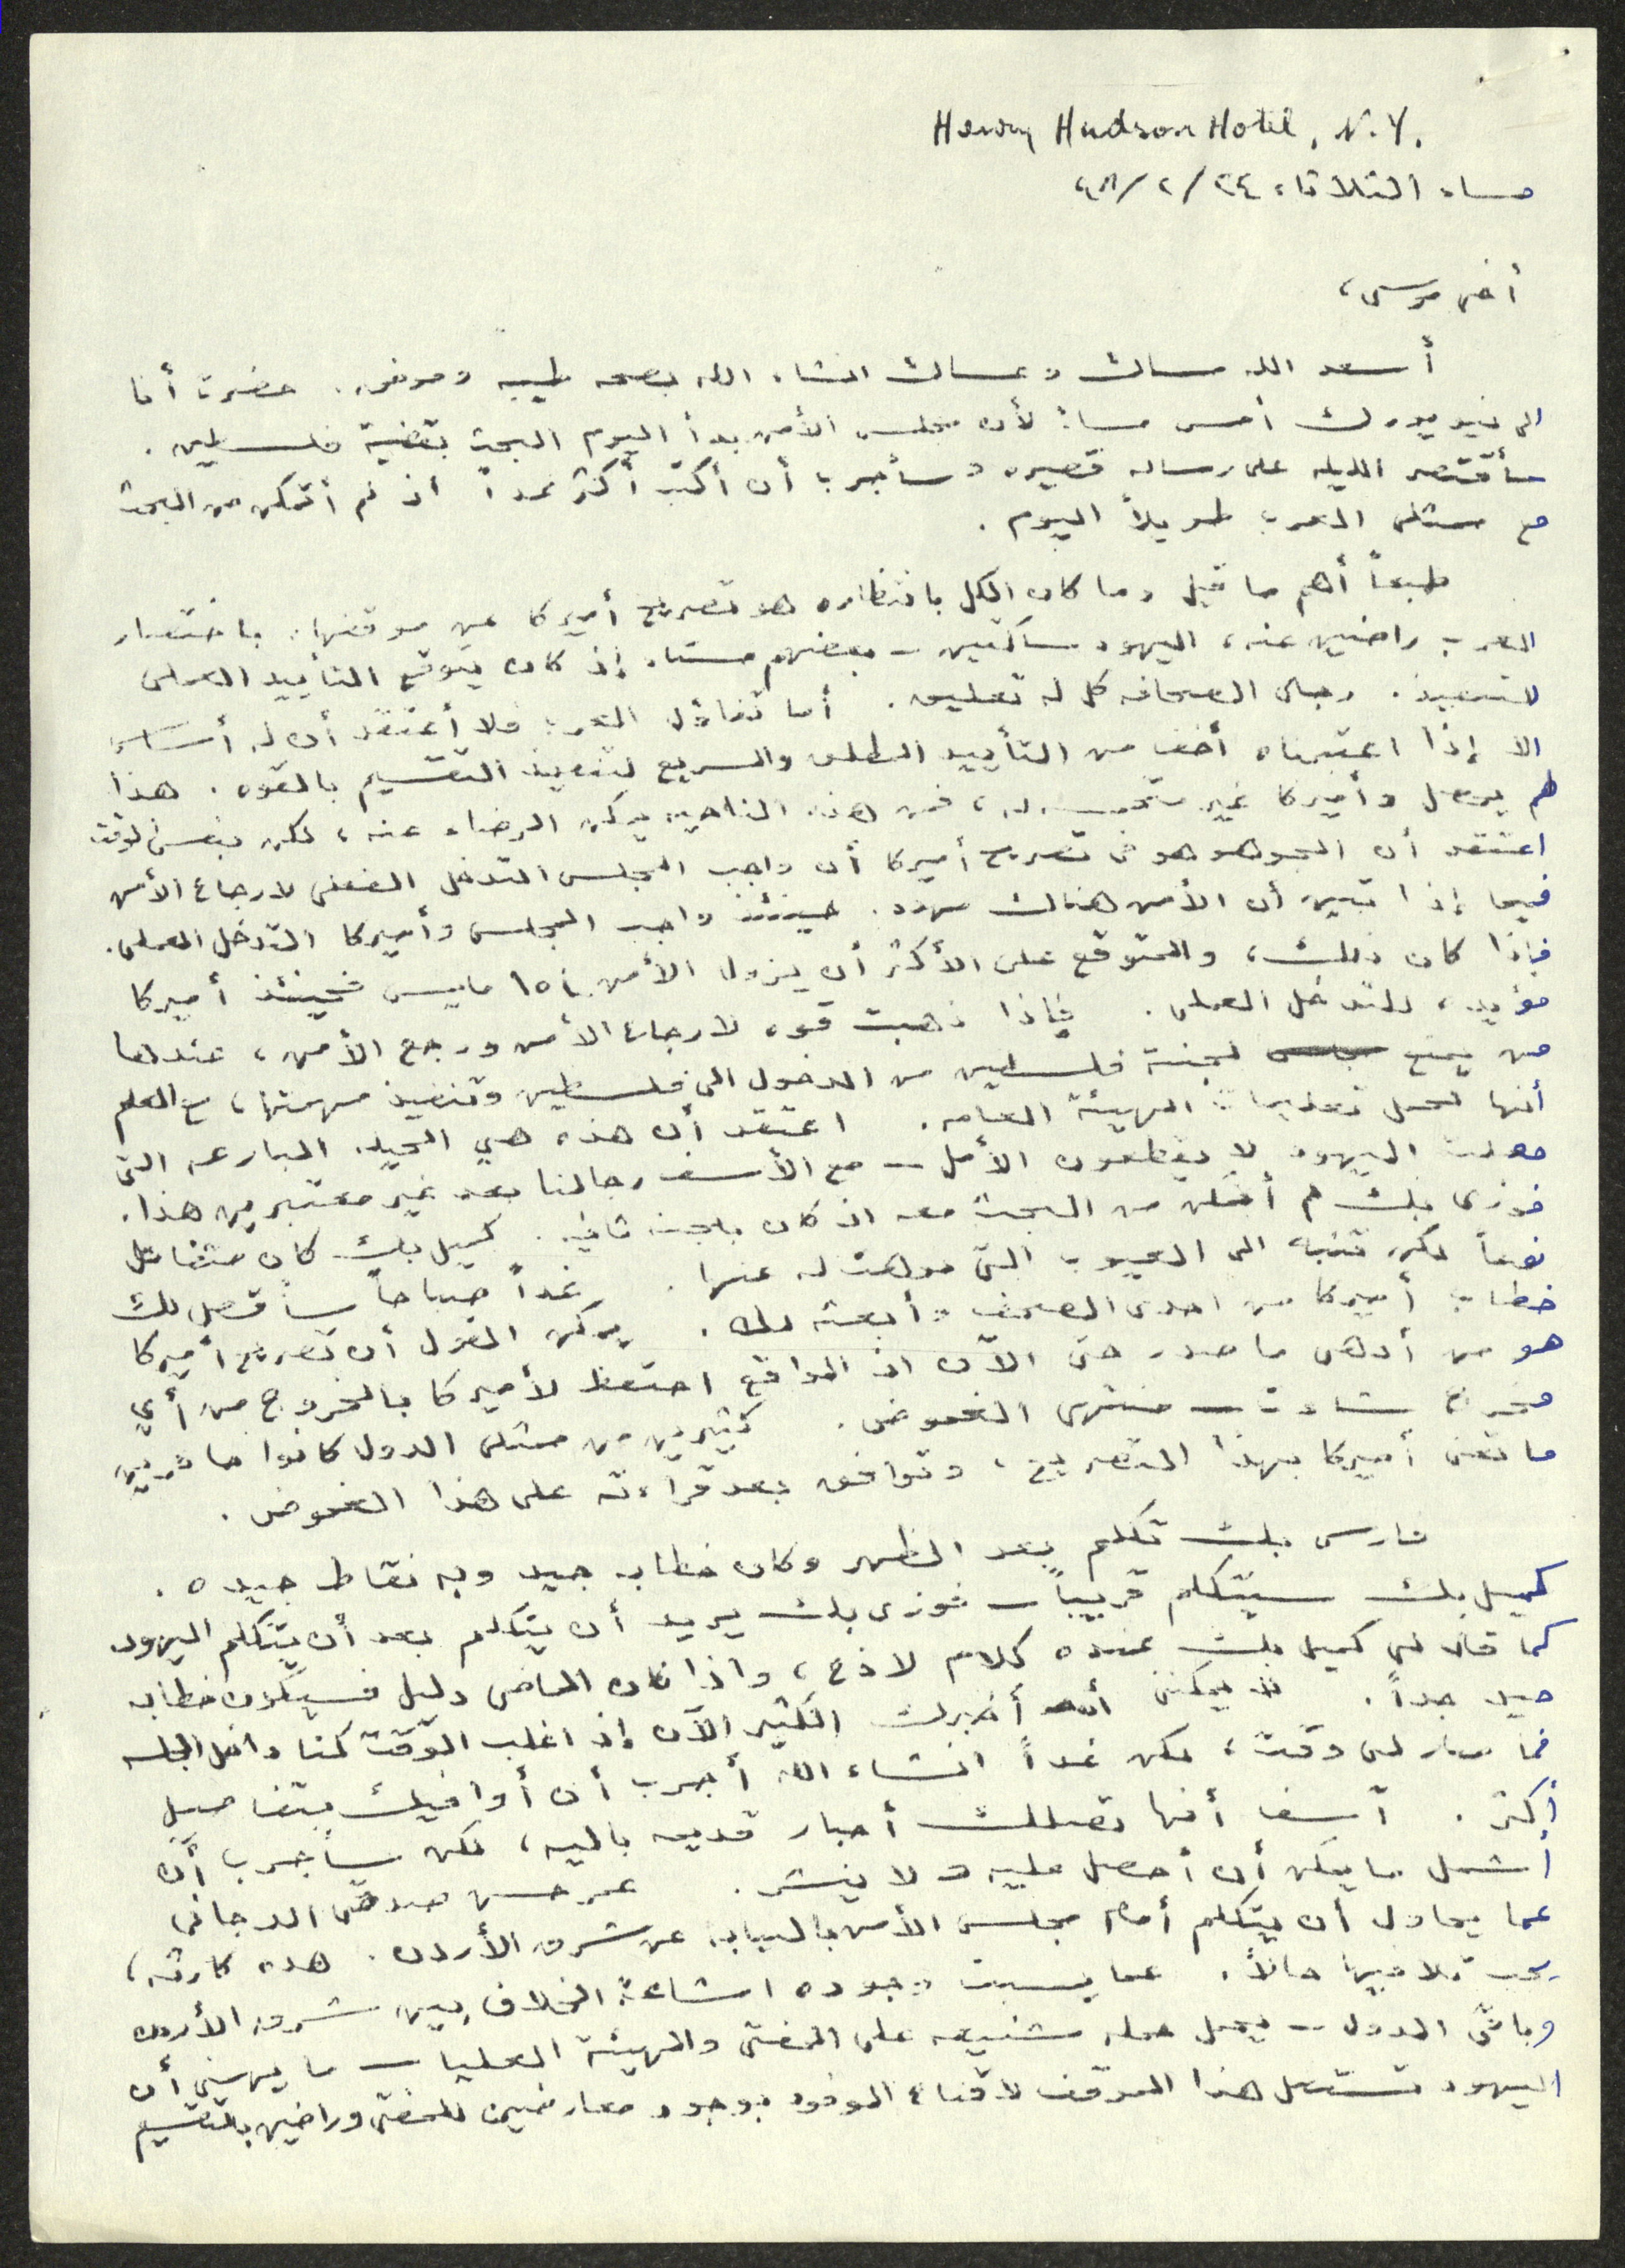 Henry Hudson Hotel, N.Y.
مساء الثلاثاء ٢٤/٢/٤٨
أخي موسى،
أسعد الله مساك وعساك انشاء الله بصحه طيبه وموفق. حضرت أنا
الى نيويورك أمس مساءً لأن مجلس الأمن بدأ اليوم البحث بقضية فلسطين.
سأقتصر الليله على رساله قصيره وسأجرب أن أكتب أكثر غداً اذ لم أتمكن من البحث
مع ممثلى العرب طويلاً اليوم.
طبعاً أهم ما قيل وما كان الكل بانتظاره هو تصريح أميركا عن موقفها. باختصار
العرب راضين عنه، اليهود ساكتين – بعضهم مستاء إذ كان يتوقع التأييد العملى
للتنفيذ. رجال الصحافه كل له تعليق. أما تفاؤل العرب فلا أعتقد أن له أساس
الا إذا اعتبرناه أخف من التأييد المطلق والسريع لتنفيذ التقسيم بالقوه. هذا
لم يحصل وأميركا غير متحمسه له، فمن هذه الناحيه يمكن الرضاء عنه، لكن بنفس الوقت
اعتقد أن الجوهر هو فى تصريح أميركا أن واجب المجلس التدخل الفعلى لارجاع الأمن
فيما إذا تبين أن الأمن هناك مهدد. حينئذ واجب المجلس وأميركا التدخل العملى.
فإذا كان ذلك، والمتوقع على الأكثر أن يزول الأمن ١٥ مايس فحينئذ أميركا
مؤيده للتدخل العملى. فإذا ذهبت قوه لارجاع الأمن ورجع الأمن، عندها
من يمنع لجنة فلسطين من الدخول الى فلسطين وتنفيذ مهمتها، مع العلم
أنها تحمل تعليمات الهيئة العامه. اعتقد أن هذه هي الحيله البارعه التى
جعلت اليهود لا يقطعون الأمل – مع الأسف رجالنا بعد غير معتبرين هذا.
فوزى بك لم أتمكن من البحث معه اذ كان بلجنه ثانيه. كميل بك كان متفائل
نوعاً لكن تنبه الى العيوب التى نوهت له عنها. غداً صباحاً سأقص لك
خطاب أميركا من احدى الصحف وأبعثه لك. يمكن القول أن تصريح أميركا
هو من أدهى ما صدر حتى الآن اذ الواقع احتفظ لأميركا بالخروج من أي
مخرج شاءت – منتهى الغموض. كثيرين من ممثلى الدول كانوا حائرين
ما تعنى أميركا بهذا التصريح، وتوافق بعد قراءته على هذا الغموض.
فارس بك تكلم بعد الظهر وكان خطابه جيد وبه نقاط جيده.
كميل بك سيتكلم قريباً – فوزى بك يريد أن يتكلم بعد أن يتكلم اليهود
كما قال لى كميل بك عنده كلام لاذع، واذا كان الماضى دليل فسيكون خطابه
جيد جداً. لا يمكننى أن أخبرك الكثير الآن إذ اغلب الوقت كنا داخل الجلسه
فما صار لى وقت، لكن غداً انشاء الله أجرب أن أوافيك بتفاصيل
أكثر. آسف أنها تصلك أخبار قديمه باليه، لكن سأجرب أن
أشمل ما يمكن أن أحصل عليه ولا ينشر. عمر حسن صدقى الدجانى
عما يحاول أن يتكلم أمام مجلس الأمن بالنيابه عن شرق الأردن. هذه كارثه،
يجب تلافيها حالاً. عما يسبب وجوده اشاعة الخلاف بين شرق الأردن
وباقى الدول – يحمل حمله شنيعه على المفتى والهيئة العليا – ما يهمنى أن
اليهود تستعمل هذا الموقف لاقناع الوفود بوجود معارضين للمفتى وراضين بالتقسيم